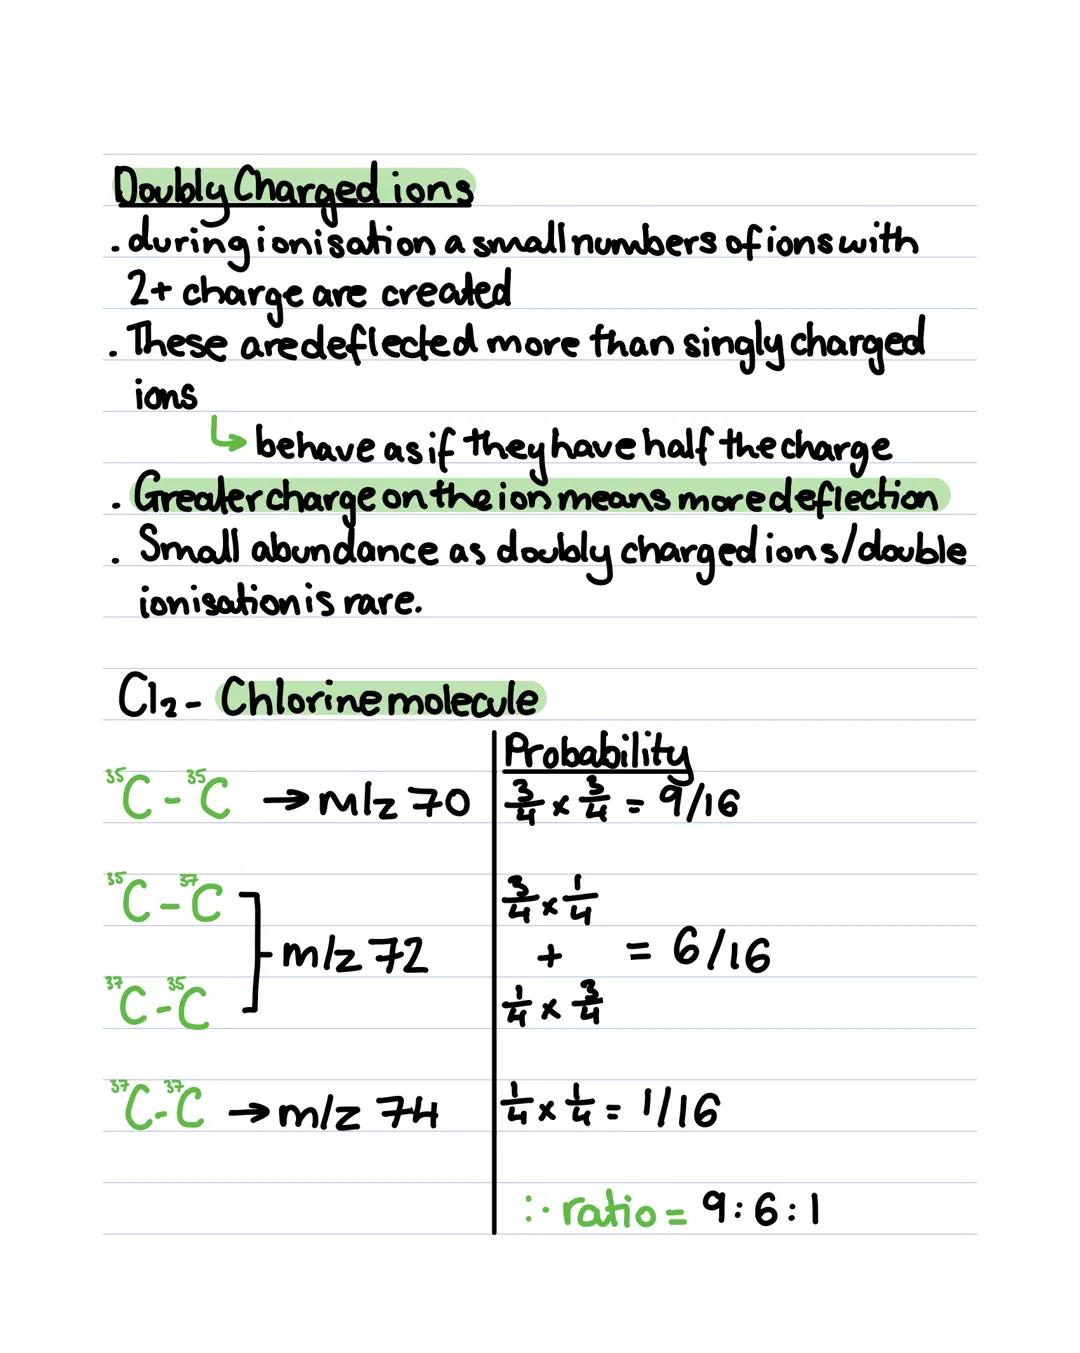 Doubly Charged ions
. during ionisation a small numbers of ions with
2+ charge are created
. These are deflected more than singly charged
ions
↳ behave as if they have half the charge
. Greater charge on the ion means more deflection
. Small abundance as doubly charged ions/double
ionisation is rare.
Cl₂ - Chlorine molecule
Probability
³⁵C - ³⁵C → m/z 70 3/4 × 3/4 = 9/16
³⁵C - ³⁷C 3/4 × 1/4
m/z 72 + = 6/16
³⁷C - ³⁵C 1/4 × 3/4
³⁷C - ³⁷C → m/z 74 1/4 × 1/4 = 1/16
∴ ratio = 9:6:1